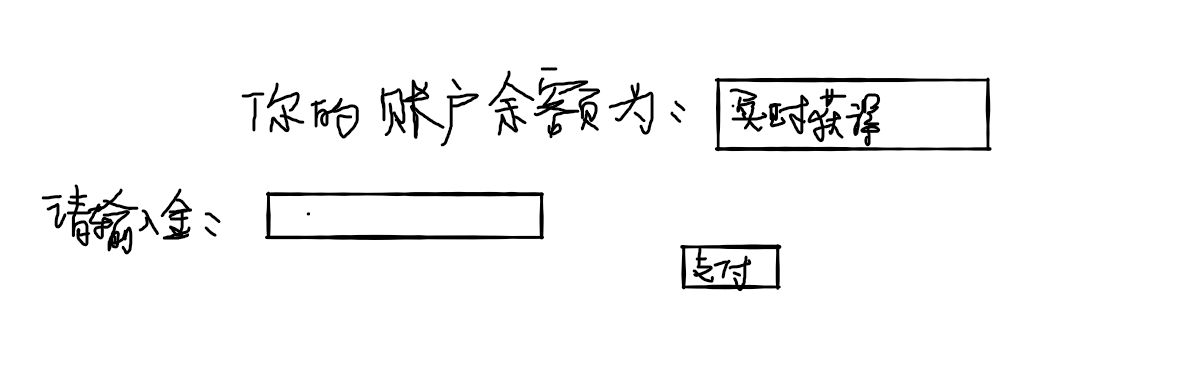 你的账户余额为: 实时获得
请输入金:
支付